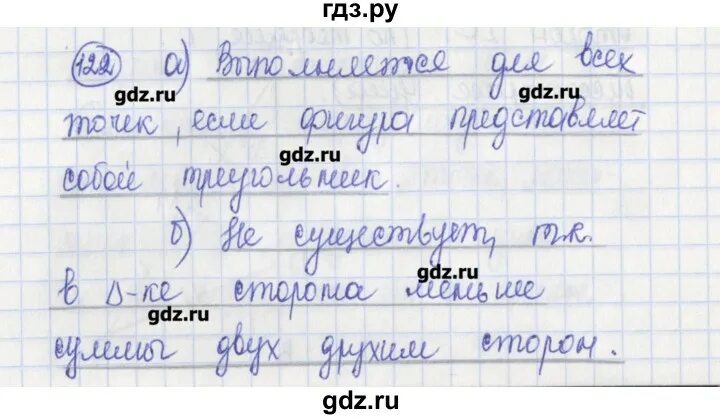 гдз.ру
122 а) Выполняется для всех
gdz.ru gdz.ru
точек, если фигура представляет
gdz.ru
собой треугольник.
б) Не существует, т.к.
gdz.ru
в Δ-ке сторона меньше
gdz.ru
суммы двух друхим сторон.
gdz.ru